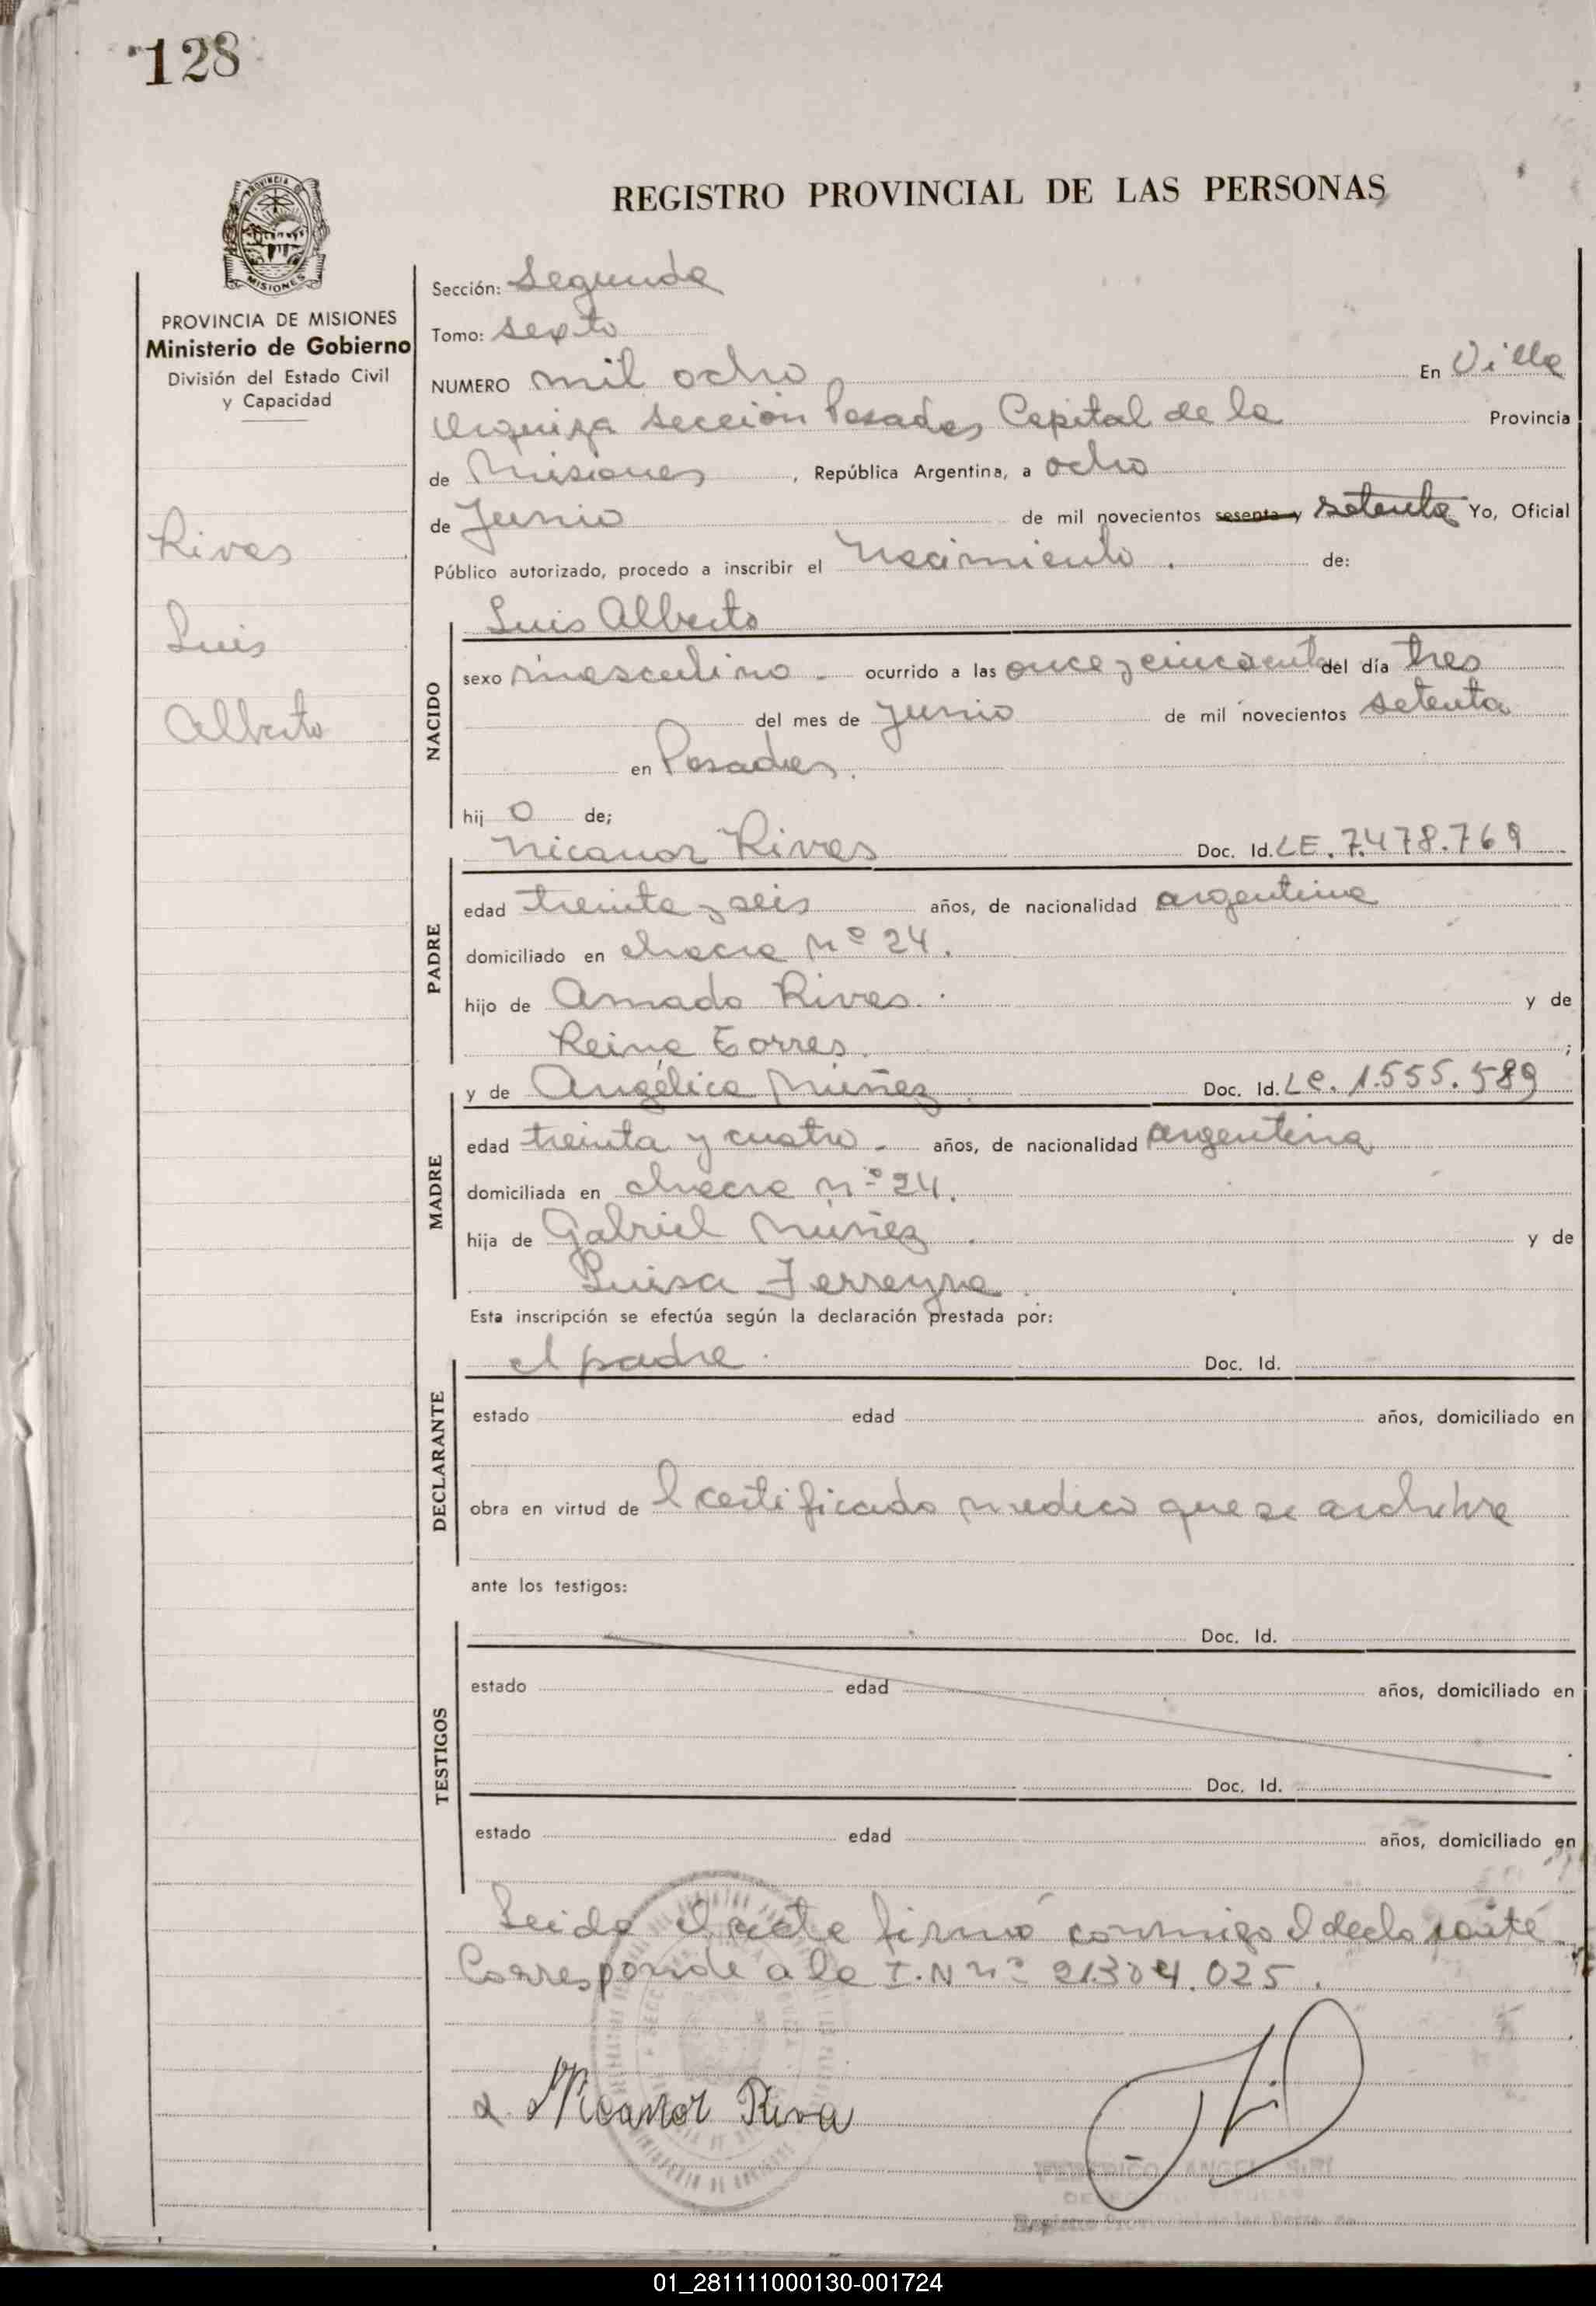 128
PROVINCIA DE
MISIONES
REGISTRO PROVINCIAL DE LAS PERSONAS
PROVINCIA DE MISIONES
Ministerio de Gobierno
División del Estado Civil
y Capacidad
Rivas
Luis
Alberto
Sección: Segunda
Tomo: sexto
NUMERO mil ocho En Villa
Urquiza sección Posadas Capital de la Provincia
de Misiones, República Argentina, a ocho
de Junio de mil novecientos sesenta y setenta Yo, Oficial
Público autorizado, procedo a inscribir el Nacimiento. de:
NACIDO
Luis Alberto
sexo masculino - ocurrido a las once y cincuenta del día tres
del mes de junio de mil novecientos setenta
en Posadas.
hij o de;
PADRE
Nicanor Rivas Doc. Id. LE. 7.478.769
edad treinta y seis años, de nacionalidad argentina
domiciliado en chacra Nº 24.
hijo de Amado Rivas. y de
Reina Torres. ;
MADRE
y de Angélica Núñez. Doc. Id. LC. 1.555.589
edad treinta y cuatro - años, de nacionalidad argentina
domiciliada en chacra nº 24.
hija de Gabriel Núñez. y de
Luisa Ferreyra.
Esta inscripción se efectúa según la declaración prestada por:
DECLARANTE
el padre. Doc. Id.
estado edad años, domiciliado en
obra en virtud de l certificado medico que se archiva
ante los testigos:
TESTIGOS
Doc. Id.
estado edad años, domiciliado en
Doc. Id.
estado edad años, domiciliado en
Leida el acta firmó conmigo el declarante.
Corresponde a la I.N nº 21.304.025.
Nicanor Riva
01_281111000130-001724